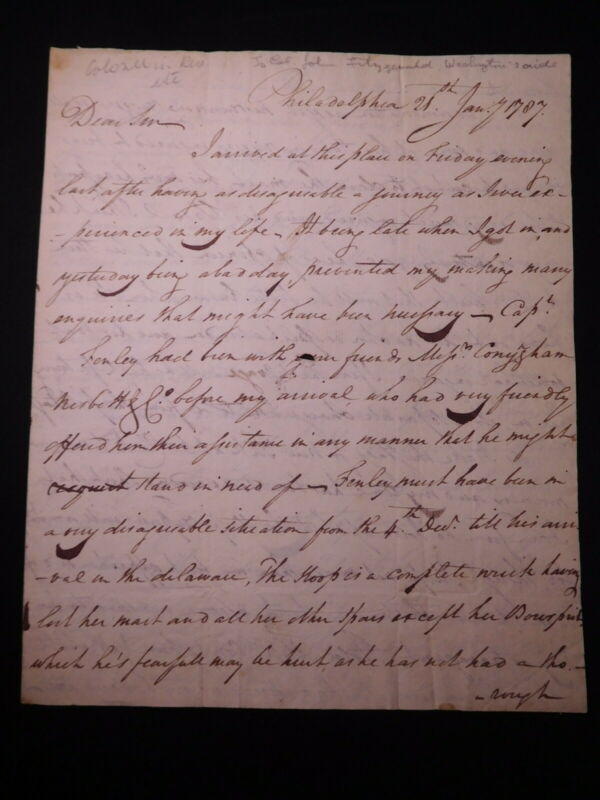 To Col. John Fitzgerald Washington's aide
Philadelphia 21st. Jany 1787.
Dear Sir
I arrived at this place on Friday evening
last after having as disagreable a journey as I ever ex-
-perienced in my life - It being late when I got in, and
yesterday being a bad day, prevented my making many
enquiries that might have been necessary - Capt.
Fenley had been with our friends Messrs. Conyngham
Nesbitt & Co. before my arrival who had very friendly
offered him their assistance in any manner that he might
request stand in need of - Fenley must have been in
a very disagreable situation from the 4th. Decr. till his arri-
-val in the delaware, The Sloop is a complete wreck having
lost her mast and all her other Spars except her Bowsprit,
which he's fearfull may be hurt, as he has not had a tho-
-rough